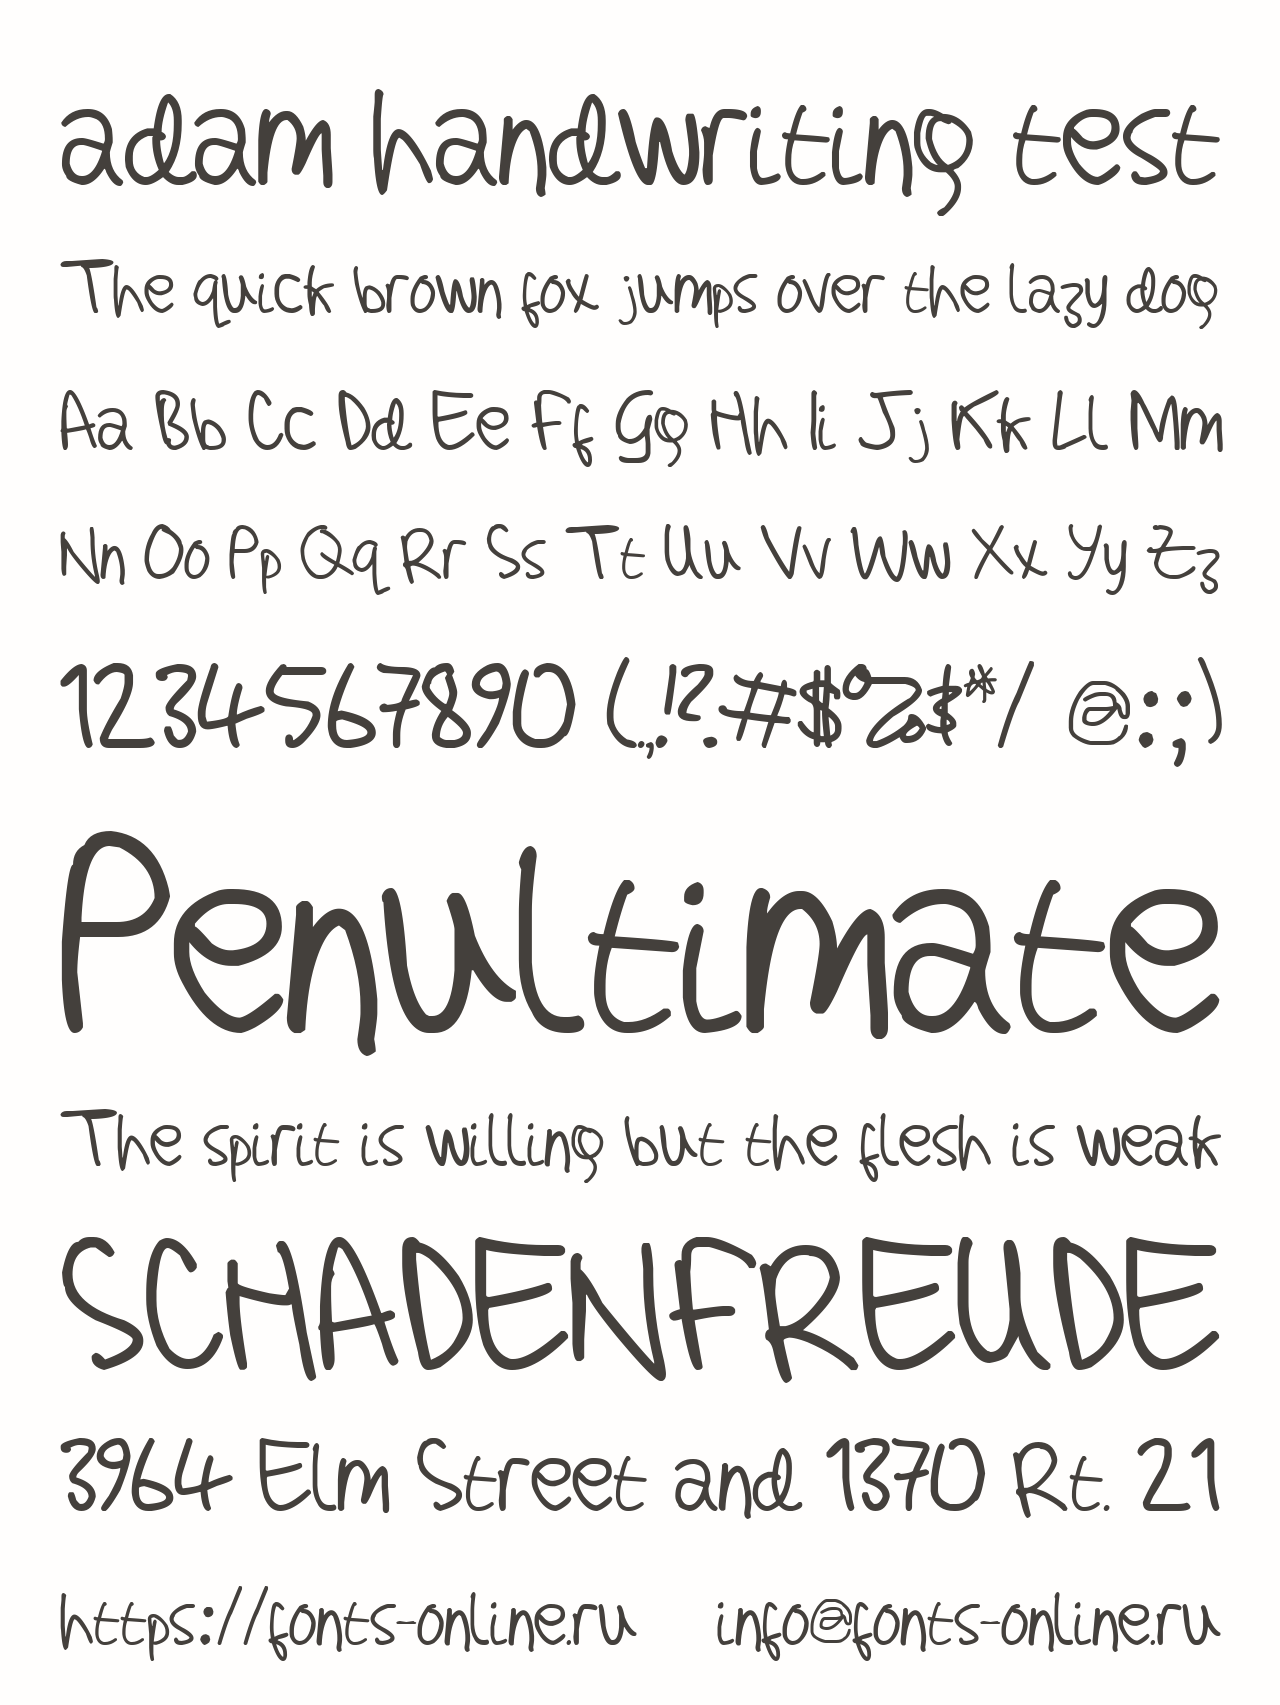 adam handwriting test
The quick brown fox jumps over the lazy dog
Aa Bb Cc Dd Ee Ff Gg Hh Ii Jj Kk Ll Mm
Nn Oo Pp Qq Rr Ss Tt Uu Vv Ww Xx Yy Zz
1234567890 (.,!?#$%&*/ @:;)
Penultimate
The spirit is willing but the flesh is weak
SCHADENFREUDE
3964 Elm Street and 1370 Rt. 21
https://fonts-online.ru info@fonts-online.ru